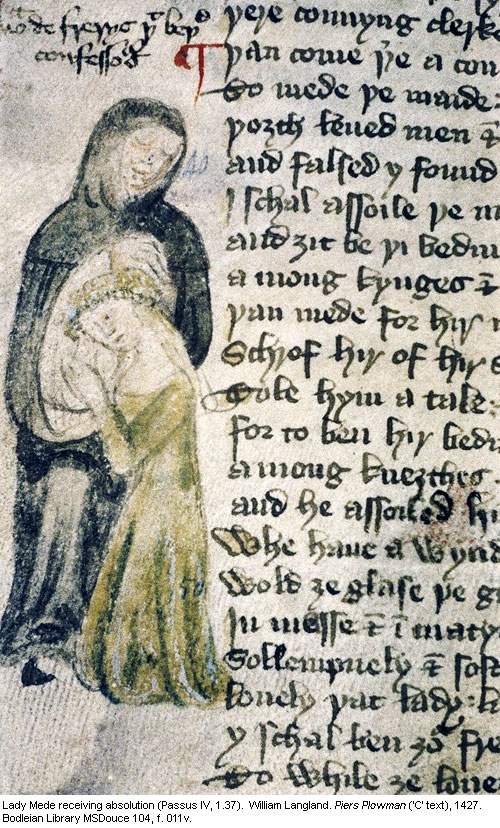 confessod
yere connyng clerke
yan come ye a con
To mede ye maide
yorgh leued men &
and falsed y found
I schal assoile ye m
and ȝit be yi bedm
a mong kynges &
yan mede for hir
Schrof hir of hir s
Tole hym a tale
for to ben hir bedm
a mong knyȝthes
and he assoiled hir
Whe haue a wynd
Wold ȝe glase ye g
In messe & ī maty
Sollempnely & soþ
louely yat lady
y schal ben ȝoͬ fre
To while ȝe loue
40
50
Lady Mede receiving absolution (Passus IV, 1.37).  William Langland. Piers Plowman ('C' text), 1427.
Bodleian Library MSDouce 104, f. 011v.